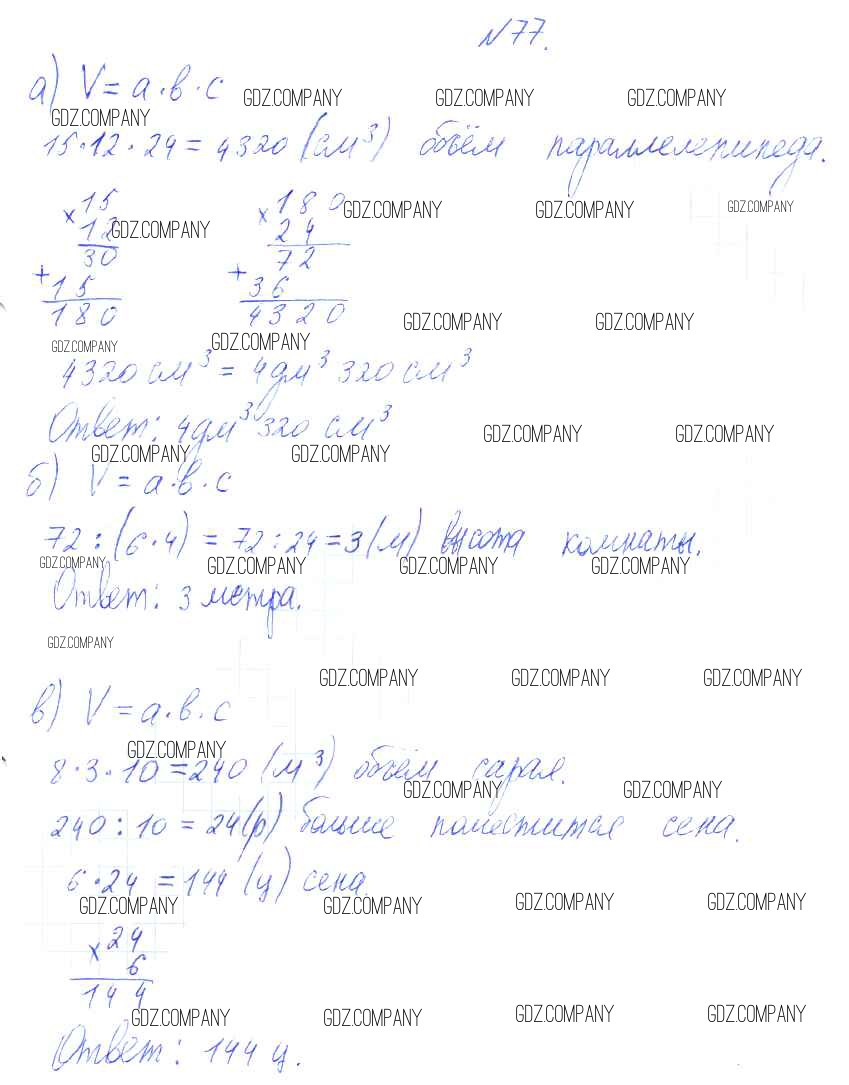 №77.
а) V = а·в·с
GDZ.COMPANY GDZ.COMPANY GDZ.COMPANY
GDZ.COMPANY
15·12·24 = 4320 (см³) объём параллелепипеда.
× 15 × 180
GDZ.COMPANY GDZ.COMPANY GDZ.COMPANY
12 24
GDZ.COMPANY
30 72
+ 15 + 36
180 4320
GDZ.COMPANY GDZ.COMPANY
GDZ.COMPANY GDZ.COMPANY
4320 см³ = 4дм³ 320 см³
Ответ: 4дм³ 320 см³
GDZ.COMPANY GDZ.COMPANY
GDZ.COMPANY GDZ.COMPANY
б) V = а·в·с
72 : (6·4) = 72 : 24 = 3 (м) высота комнаты.
GDZ.COMPANY GDZ.COMPANY GDZ.COMPANY GDZ.COMPANY
Ответ: 3 метра.
GDZ.COMPANY
GDZ.COMPANY GDZ.COMPANY GDZ.COMPANY
в) V = а·в·с
GDZ.COMPANY
8·3·10 = 240 (м³) объём сарая.
GDZ.COMPANY GDZ.COMPANY
240 : 10 = 24 (р) больше поместится сена.
6·24 = 144 (ц) сена.
GDZ.COMPANY GDZ.COMPANY GDZ.COMPANY GDZ.COMPANY
× 24
6
144
GDZ.COMPANY GDZ.COMPANY GDZ.COMPANY GDZ.COMPANY
Ответ: 144 ц.